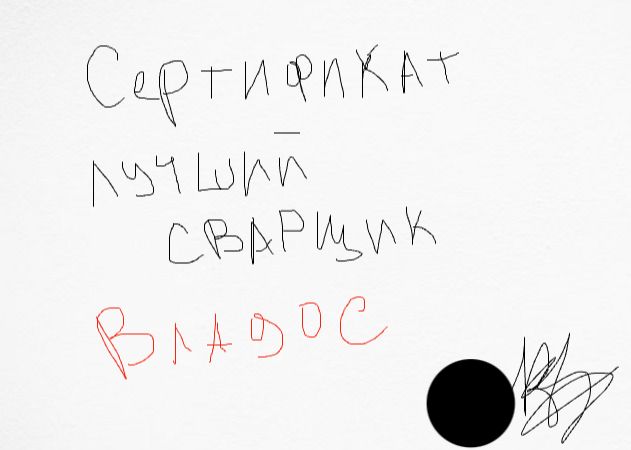 Сертификат
лучший
сварщик
Владос